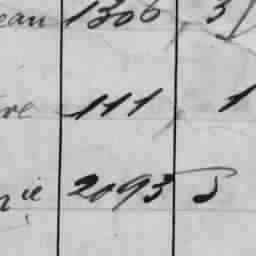 eau 1306 3
re 111 1
ie 2093 5